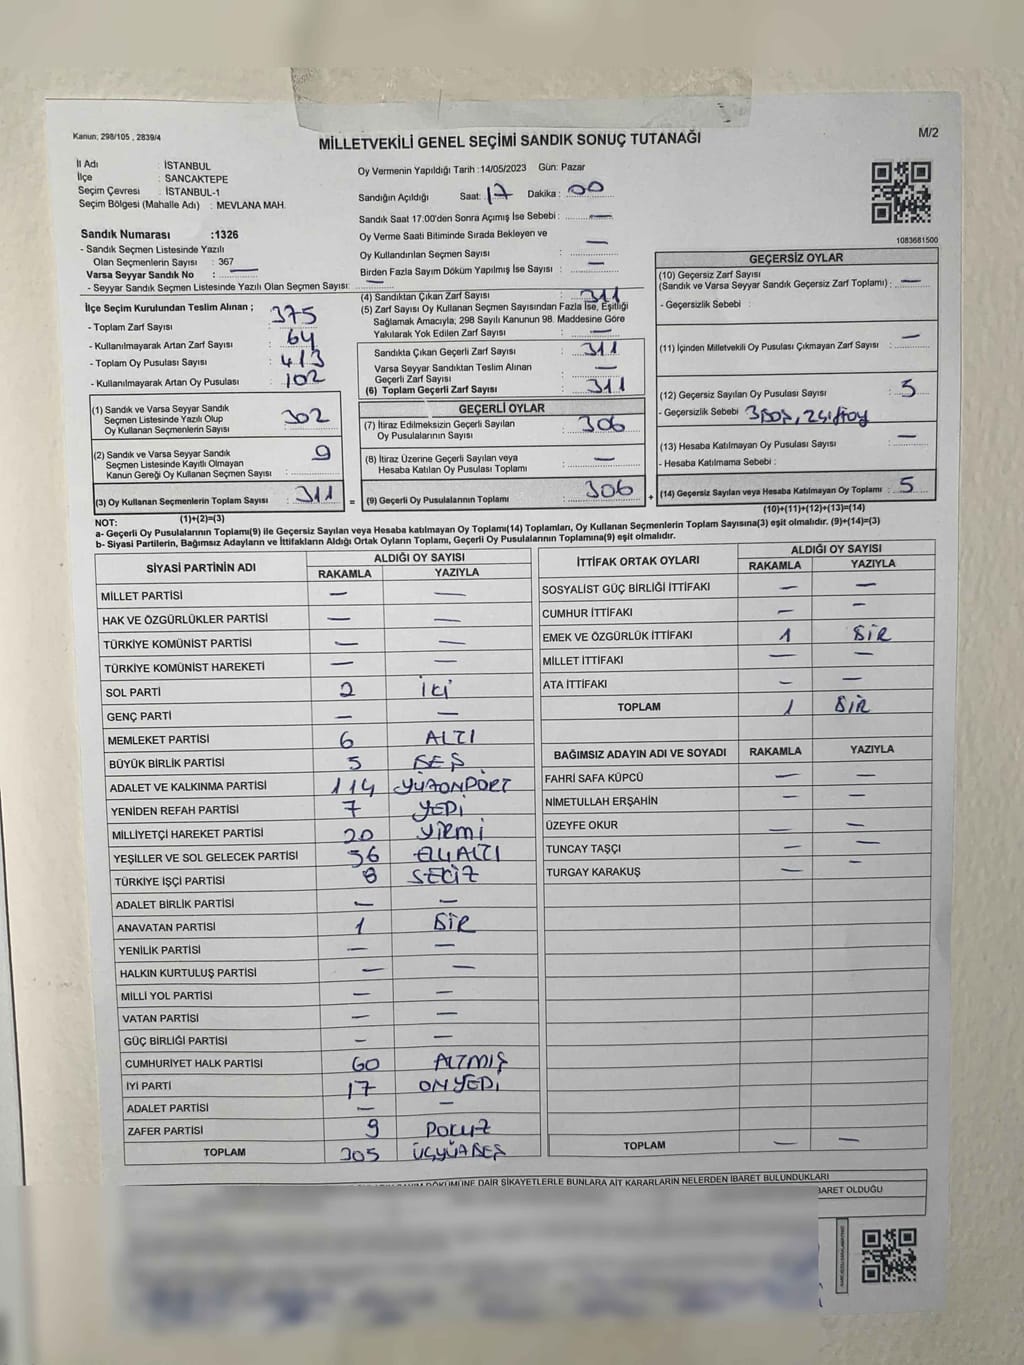 Kanun; 298/105 , 2839/4
MİLLETVEKİLİ GENEL SEÇİMİ SANDIK SONUÇ TUTANAĞI
M/2
İl Adı : İSTANBUL
İlçe : SANCAKTEPE
Seçim Çevresi : İSTANBUL-1
Seçim Bölgesi (Mahalle Adı) : MEVLANA MAH.
Oy Vermenin Yapıldığı Tarih :14/05/2023 Gün: Pazar
Sandığın Açıldığı Saat: 17 Dakika : 00
Sandık Saat 17:00'den Sonra Açımış İse Sebebi : —
Oy Verme Saati Bitiminde Sırada Bekleyen ve
Oy Kullandırılan Seçmen Sayısı : —
Birden Fazla Sayım Döküm Yapılmış İse Sayısı : —
1083681500
Sandık Numarası :1326
- Sandık Seçmen Listesinde Yazılı
Olan Seçmenlerin Sayısı : 367
Varsa Seyyar Sandık No : —
- Seyyar Sandık Seçmen Listesinde Yazılı Olan Seçmen Sayısı: —
İlçe Seçim Kurulundan Teslim Alınan ;
- Toplam Zarf Sayısı : 375
- Kullanılmayarak Artan Zarf Sayısı : 64
- Toplam Oy Pusulası Sayısı : 413
- Kullanılmayarak Artan Oy Pusulası : 102
(1) Sandık ve Varsa Seyyar Sandık
Seçmen Listesinde Yazılı Olup
Oy Kullanan Seçmenlerin Sayısı : 302
(2) Sandık ve Varsa Seyyar Sandık
Seçmen Listesinde Kayıtlı Olmayan
Kanun Gereği Oy Kullanan Seçmen Sayısı : 9
(3) Oy Kullanan Seçmenlerin Toplam Sayısı : 311 =
(1)+(2)=(3)
(4) Sandıktan Çıkan Zarf Sayısı : 311
(5) Zarf Sayısı Oy Kullanan Seçmen Sayısından Fazla İse, Eşitliği
Sağlamak Amacıyla; 298 Sayılı Kanunun 98. Maddesine Göre
Yakılarak Yok Edilen Zarf Sayısı : —
Sandıkta Çıkan Geçerli Zarf Sayısı : 311
Varsa Seyyar Sandıktan Teslim Alınan
Geçerli Zarf Sayısı : —
(6) Toplam Geçerli Zarf Sayısı : 311
GEÇERLİ OYLAR
(7) İtiraz Edilmeksizin Geçerli Sayılan
Oy Pusulalarının Sayısı : 306
(8) İtiraz Üzerine Geçerli Sayılan veya
Hesaba Katılan Oy Pusulası Toplamı : —
(9) Geçerli Oy Pusulalarının Toplamı : 306 +
GEÇERSİZ OYLAR
(10) Geçersiz Zarf Sayısı
(Sandık ve Varsa Seyyar Sandık Geçersiz Zarf Toplamı) : —
- Geçersizlik Sebebi :
(11) İçinden Milletvekili Oy Pusulası Çıkmayan Zarf Sayısı : —
(12) Geçersiz Sayılan Oy Pusulası Sayısı : 5
- Geçersizlik Sebebi 3 BOŞ, 2 çift oy
(13) Hesaba Katılmayan Oy Pusulası Sayısı : —
- Hesaba Katılmama Sebebi :
(14) Geçersiz Sayılan veya Hesaba Katılmayan Oy Toplamı : 5
(10)+(11)+(12)+(13)=(14)
NOT:
a- Geçerli Oy Pusulalarının Toplamı(9) ile Geçersiz Sayılan veya Hesaba katılmayan Oy Toplamı(14) Toplamları, Oy Kullanan Seçmenlerin Toplam Sayısına(3) eşit olmalıdır. (9)+(14)=(3)
b- Siyasi Partilerin, Bağımsız Adayların ve İttifakların Aldığı Ortak Oyların Toplamı, Geçerli Oy Pusulalarının Toplamına(9) eşit olmalıdır.
SİYASİ PARTİNİN ADI ALDIĞI OY SAYISI
RAKAMLA YAZIYLA
MİLLET PARTİSİ — —
HAK VE ÖZGÜRLÜKLER PARTİSİ — —
TÜRKİYE KOMÜNİST PARTİSİ — —
TÜRKİYE KOMÜNİST HAREKETİ — —
SOL PARTİ 2 İKİ
GENÇ PARTİ — —
MEMLEKET PARTİSİ 6 ALTI
BÜYÜK BİRLİK PARTİSİ 5 BEŞ
ADALET VE KALKINMA PARTİSİ 114 YÜZONDÖRT
YENİDEN REFAH PARTİSİ 7 YEDİ
MİLLİYETÇİ HAREKET PARTİSİ 20 YİRMİ
YEŞİLLER VE SOL GELECEK PARTİSİ 56 ELLİALTI
TÜRKİYE İŞÇİ PARTİSİ 8 SEKİZ
ADALET BİRLİK PARTİSİ — —
ANAVATAN PARTİSİ 1 BİR
YENİLİK PARTİSİ — —
HALKIN KURTULUŞ PARTİSİ — —
MİLLİ YOL PARTİSİ — —
VATAN PARTİSİ — —
GÜÇ BİRLİĞİ PARTİSİ — —
CUMHURİYET HALK PARTİSİ 60 ALTMIŞ
İYİ PARTİ 17 ONYEDİ
ADALET PARTİSİ — —
ZAFER PARTİSİ 9 DOKUZ
TOPLAM 305 ÜÇYÜZBEŞ
İTTİFAK ORTAK OYLARI ALDIĞI OY SAYISI
RAKAMLA YAZIYLA
SOSYALİST GÜÇ BİRLİĞİ İTTİFAKI — —
CUMHUR İTTİFAKI — —
EMEK VE ÖZGÜRLÜK İTTİFAKI 1 BİR
MİLLET İTTİFAKI — —
ATA İTTİFAKI — —
TOPLAM 1 BİR
BAĞIMSIZ ADAYIN ADI VE SOYADI RAKAMLA YAZIYLA
FAHRİ SAFA KÜPCÜ — —
NİMETULLAH ERŞAHİN — —
ÜZEYFE OKUR — —
TUNCAY TAŞÇI — —
TURGAY KARAKUŞ — —
TOPLAM — —
DÖKÜMÜNE DAİR ŞİKAYETLERLE BUNLARA AİT KARARLARIN NELERDEN İBARET BULUNDUKLARI
BARET OLDUĞU